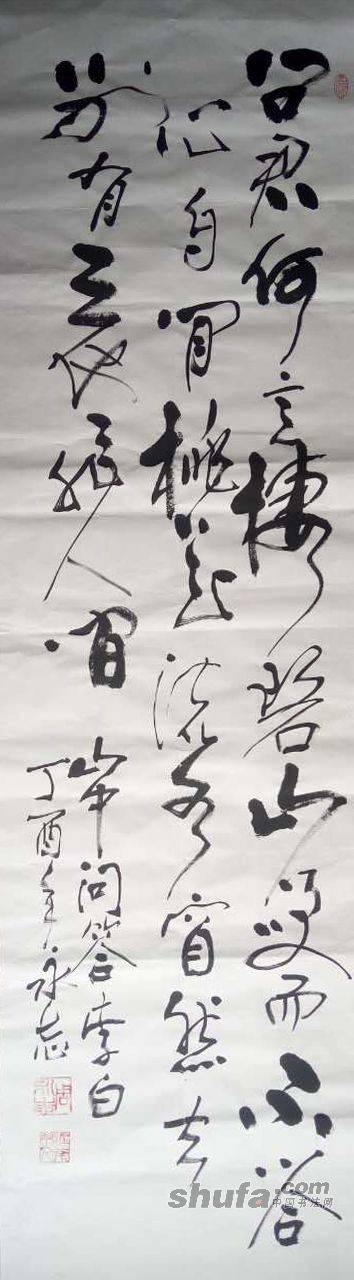 问君何意棲碧山笑而不答
心自闲桃花流水窅然去
别有天地非人间
山中问答李白
丁酉年永志
shufa.com
中国书法网